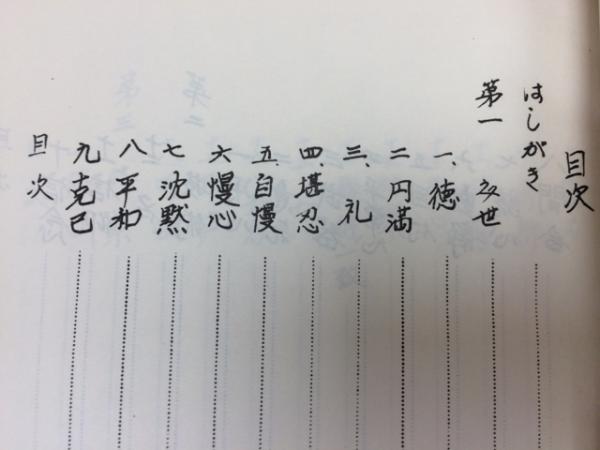 目次
はしがき
第一 処世
一、徳
二 円満
三、礼
四、堪忍
五、自慢
六 慢心
七 沈黙
八 平和
九 克己
目次